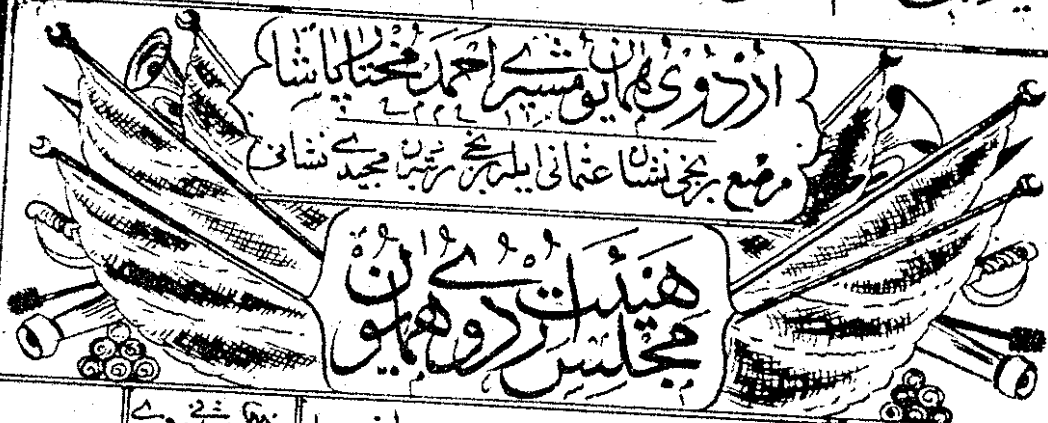 اردوی همایون مشیری احمد مختار پاشا
مرصع برنجی نشان عثمانی ایله برنجی رتبه‌دن مجیدی نشانی
هیئت مجلس اردوی همایون